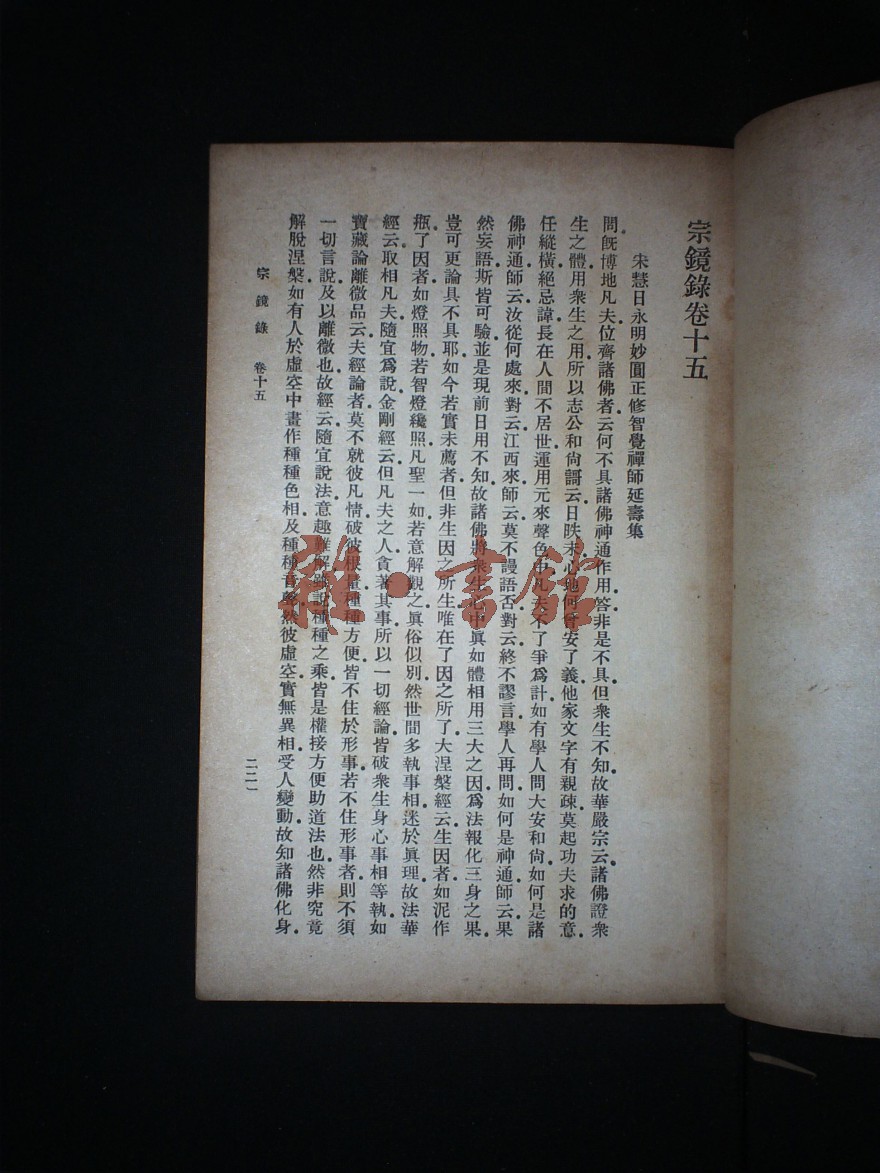 宗鏡錄卷十五
宋慧日永明妙圓正修智覺禪師延壽集
問。旣博地凡夫位齊諸佛者。云何不具諸佛神通作用。答。非是不具。但衆生不知。故華嚴宗云。諸佛證衆
生之體。用衆生之用。所以志公和尙謌云。日昳未。心地何曾安了義。他家文字有親疎。莫起功夫求的意。
任縱橫。絕忌諱。長在人間不居世。運用元來聲色中。凡夫不了爭爲計。如有學人問大安和尙。如何是諸
佛神通。師云。汝從何處來。對云。江西來。師云。莫不謾語否。對云。終不謬言。學人再問。如何是神通。師云。果
然妄語。斯皆可驗。並是現前日用不知。故諸佛將衆生心中眞如體相用三大之因。爲法報化三身之果。
豈可更論具不具耶。如今若實未薦者。但非生因之所生。唯在了因之所了。大涅槃經云。生因者。如泥作
瓶。了因者。如燈照物。若智燈纔照。凡聖一如。若意解觀之。眞俗似別。然世間多執事相。迷於眞理。故法華
經云。取相凡夫。隨宜爲說。金剛經云。但凡夫之人。貪著其事。所以一切經論。皆破衆生身心事相等執。如
寶藏論離微品云。夫經論者。莫不就彼凡情。破彼根量。種種方便。皆不住於形事。若不住形事者。則不須
一切言說。及以離微也。故經云。隨宜說法。意趣難解。雖說種種之乘。皆是權接方便助道法也。然非究竟
解脫涅槃。如有人於虛空中。畫作種種色相。及種種音聲。然彼虛空。實無異相。受人變動。故知諸佛化身。
宗鏡錄 卷十五
二二一
雜·書館